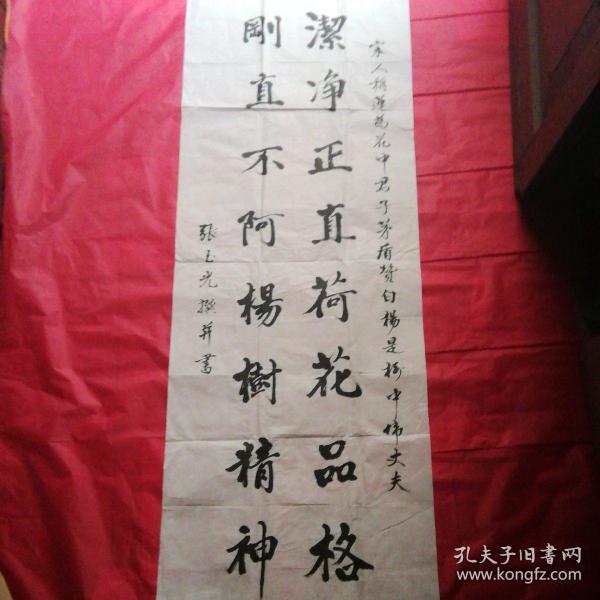 宋人稱蓮是花中君子茅盾贊白楊是樹中偉丈夫
潔净正直荷花品格
剛直不阿楊樹精神
張玉光撰并書
孔夫子旧书网
www.kongfz.com